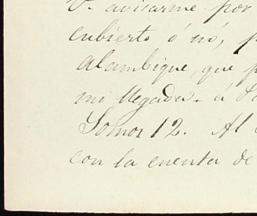 V. avisarme por
cubierto ó nó, p
Alambique, que p
mi llegada á
Somos 12. Al
con la cuenta de